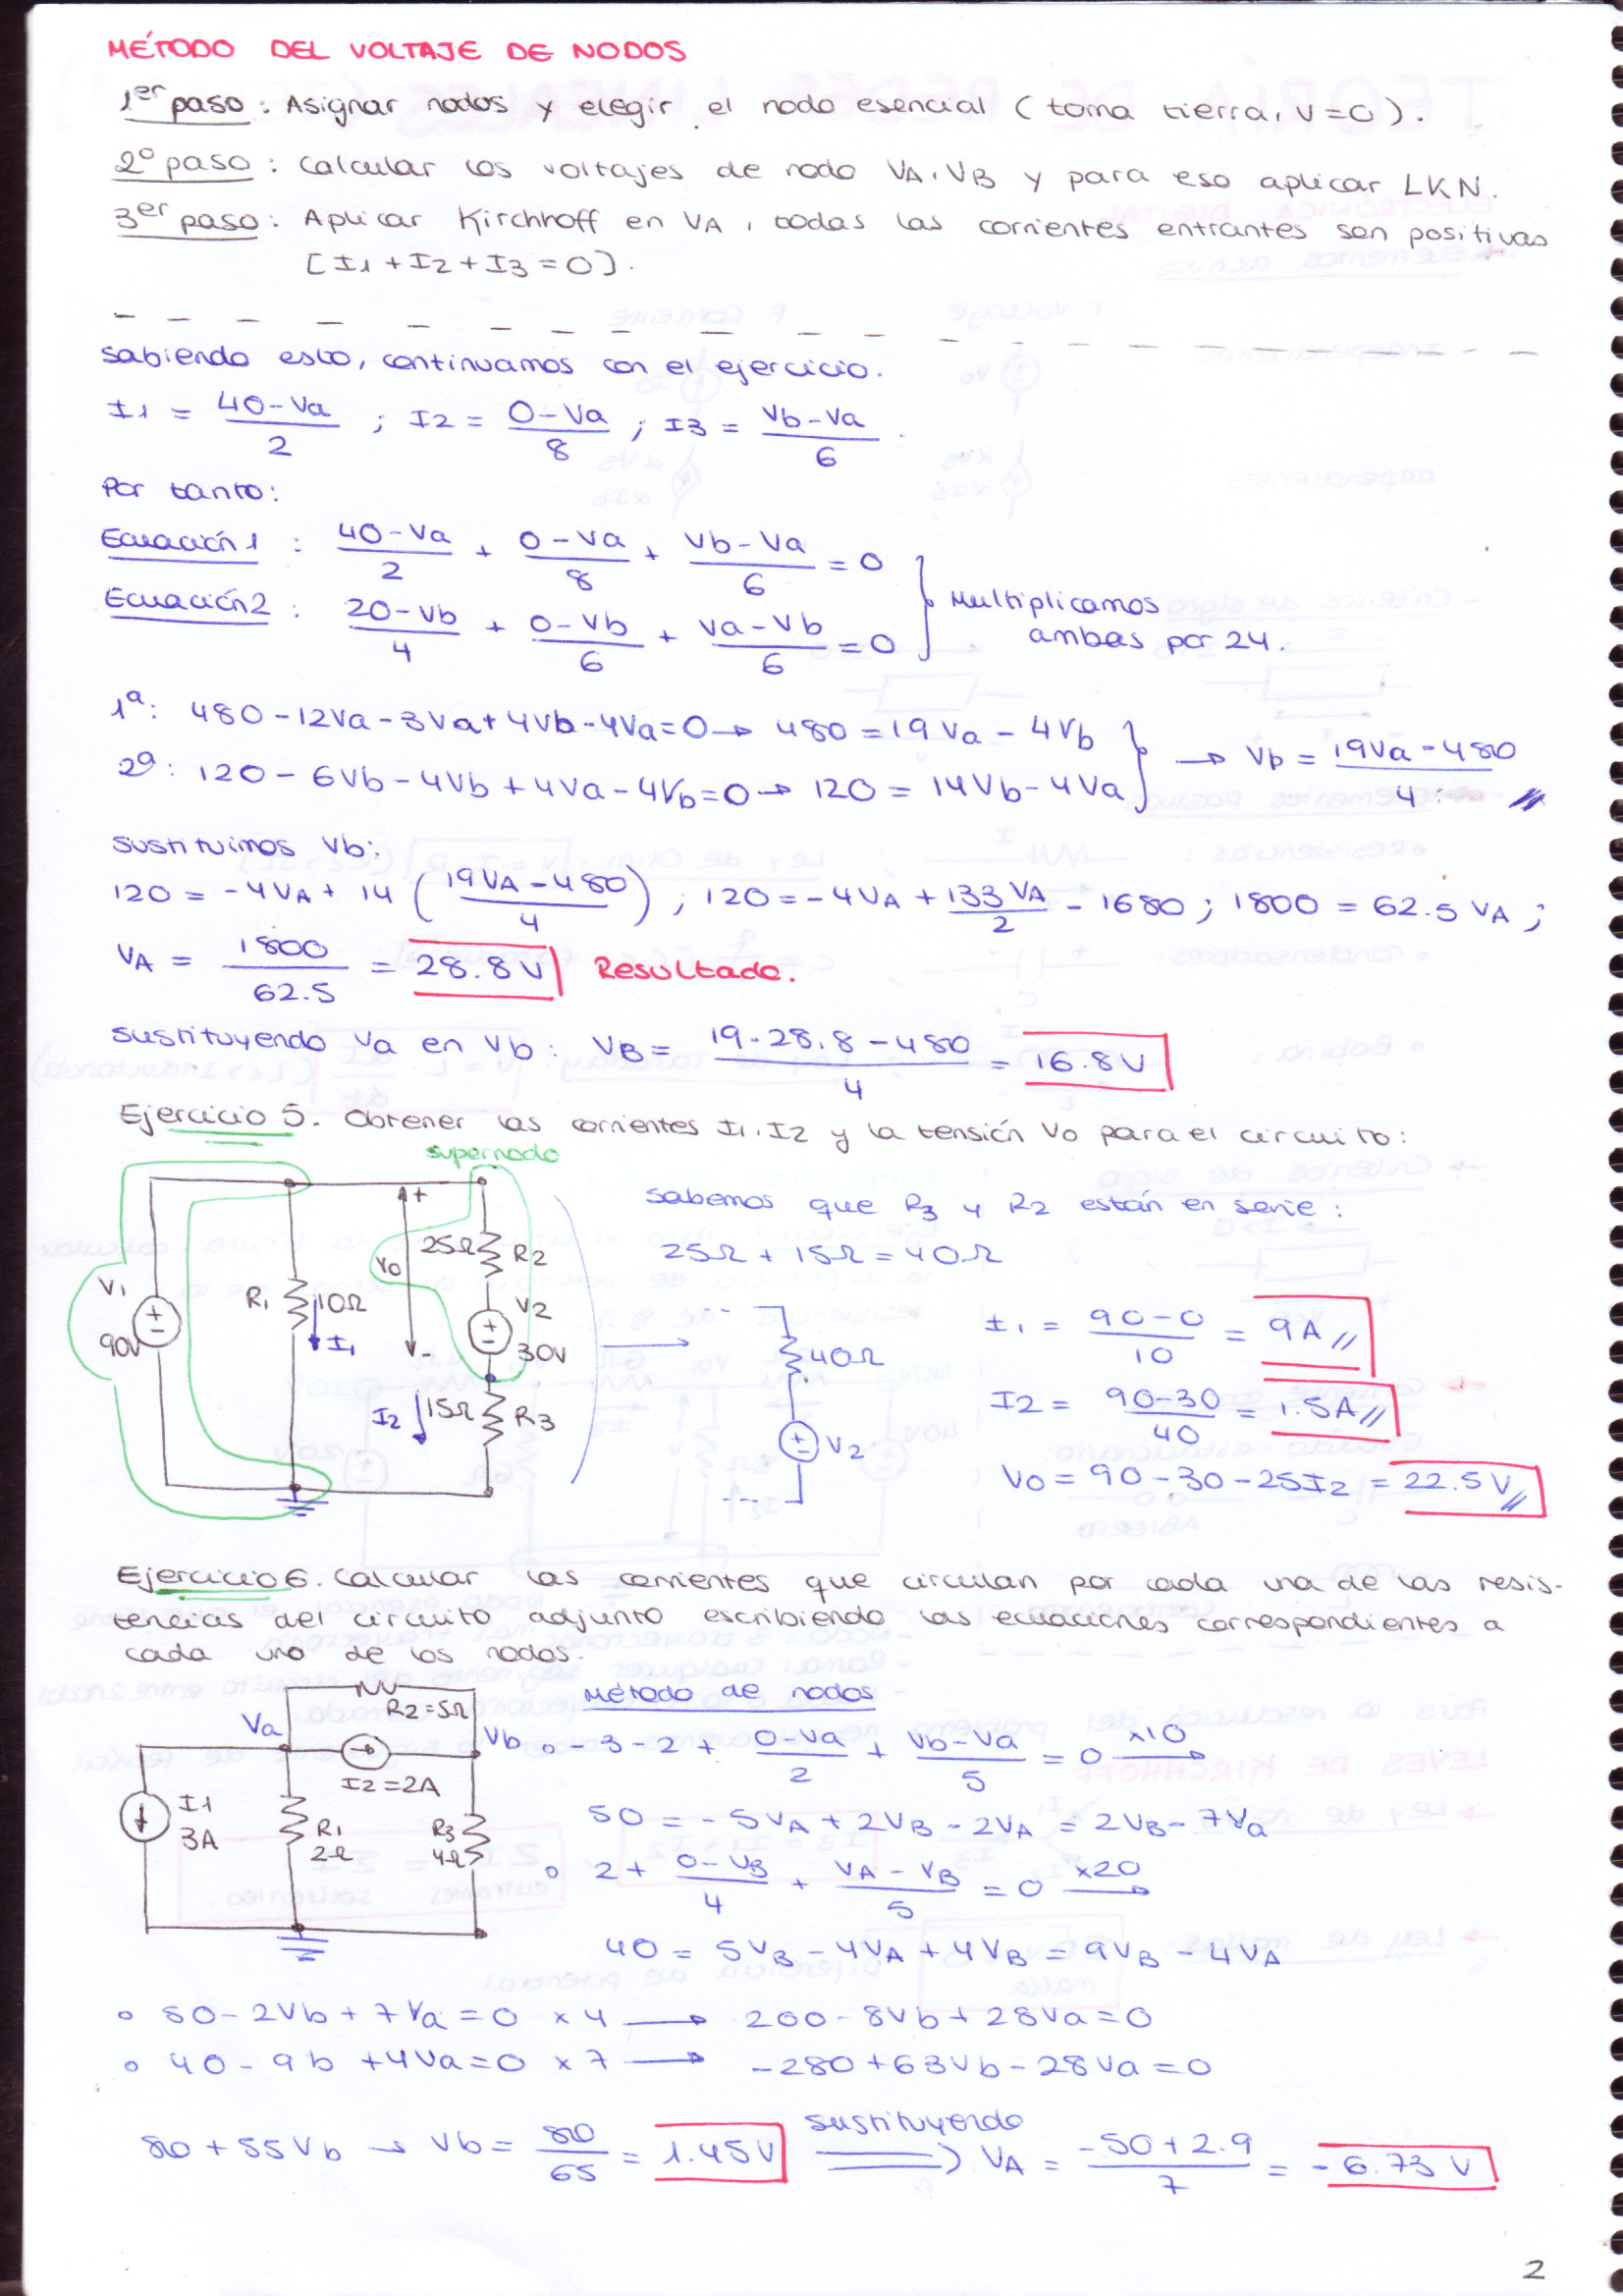 MÉTODO DEL VOLTAJE DE NODOS
1er paso: Asignar nodos y elegir el nodo esencial (toma tierra, V=0).
2º paso: Calcular los voltajes de nodo VA, VB y para eso aplicar LKN.
3er paso: Aplicar Kirchhoff en VA, todas las corrientes entrantes son positivas
[I1 + I2 + I3 = 0].
Sabiendo esto, continuamos con el ejercicio.
I1 = (40-Va)/2 ; I2 = (0-Va)/8 ; I3 = (Vb-Va)/6.
Por tanto:
Ecuación 1 : (40-Va)/2 + (0-Va)/8 + (Vb-Va)/6 = 0
Ecuación 2 : (20-Vb)/4 + (0-Vb)/6 + (Va-Vb)/6 = 0
Multiplicamos
ambas por 24.
1ª: 480-12Va-3Va+4Vb-4Va=0 → 480 = 19Va - 4Vb
2ª: 120-6Vb-4Vb+4Va-4Vb=0 → 120 = 14Vb-4Va
→ Vb = (19Va-480)/4
Sustituimos Vb:
120 = -4VA + 14 ((19VA-480)/4) ; 120 = -4VA + 133VA/2 - 1680 ; 1800 = 62.5 VA ;
VA = 1800/62.5 = 28.8V Resultado.
Sustituyendo Va en Vb: VB = (19·28.8-480)/4 = 16.8V
Ejercicio 5. Obtener las corrientes I1, I2 y la tensión Vo para el circuito:
supernodo
V1
90V
R1
10Ω
I1
+
Vo
-
25Ω
R2
V2
30V
I2
15Ω
R3
Sabemos que R3 y R2 están en serie:
25Ω + 15Ω = 40Ω
40Ω
V2
I1 = (90-0)/10 = 9A //
I2 = (90-30)/40 = 1.5A //
Vo = 90-30-25I2 = 22.5V //
Ejercicio 6. Calcular las corrientes que circulan por cada una de las resis-
tencias del circuito adjunto escribiendo las ecuaciones correspondientes a
cada uno de los nodos.
R2=5Ω
Va
Vb
I2=2A
I1
3A
R1
2Ω
R3
4Ω
Método de nodos
∘ -3-2 + (0-Va)/2 + (Vb-Va)/5 = 0 x10 →
50 = -5VA + 2VB - 2VA = 2VB - 7Va
∘ 2 + (0-VB)/4 + (VA-VB)/5 = 0 x20 →
40 = 5VB - 4VA + 4VB = 9VB - 4VA
∘ 50-2Vb+7Va=0 x4 → 200-8Vb+28Va=0
∘ 40-9b+4Va=0 x7 → -280+63Vb-28Va=0
80+55Vb → Vb = 80/65 = 1.45V Sustituyendo ⇒ VA = (-50+2.9)/7 = -6.73 V
2